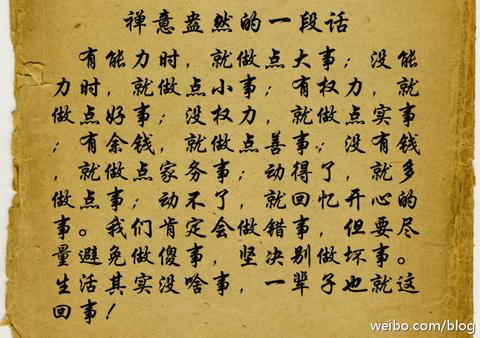 禅意盎然的一段话
有能力时，就做点大事；没能
力时，就做点小事；有权力，就
做点好事；没权力，就做点实事
；有余钱，就做点善事；没有钱
，就做点家务事；动得了，就多
做点事；动不了，就回忆开心的
事。我们肯定会做错事，但要尽
量避免做傻事，坚决别做坏事。
生活其实没啥事，一辈子也就这
回事！
weibo.com/blog